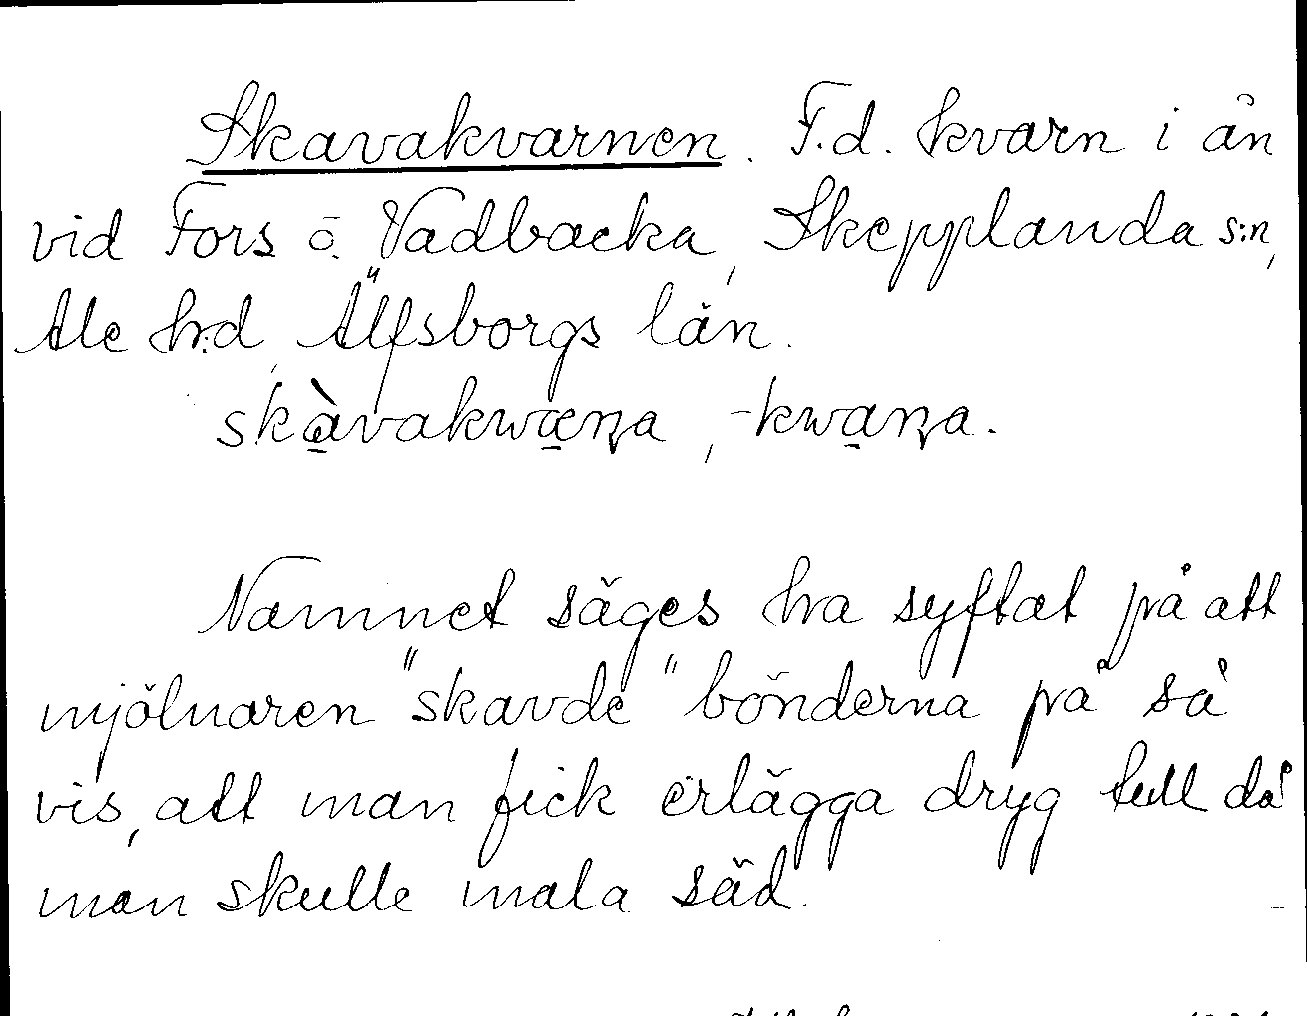 Skavakvarnen. F.d. kvarn i ån
vid Fors o. Vadbacka, Skepplanda s:n,
Ale h:d, Älfsborgs län.
skàvakwæɳa, -kwaɳa.
Namnet säges ha syftat på att
mjölnaren "skavde" bönderna på så
vis, att man fick erlägga dryg tull då
man skulle mala säd.